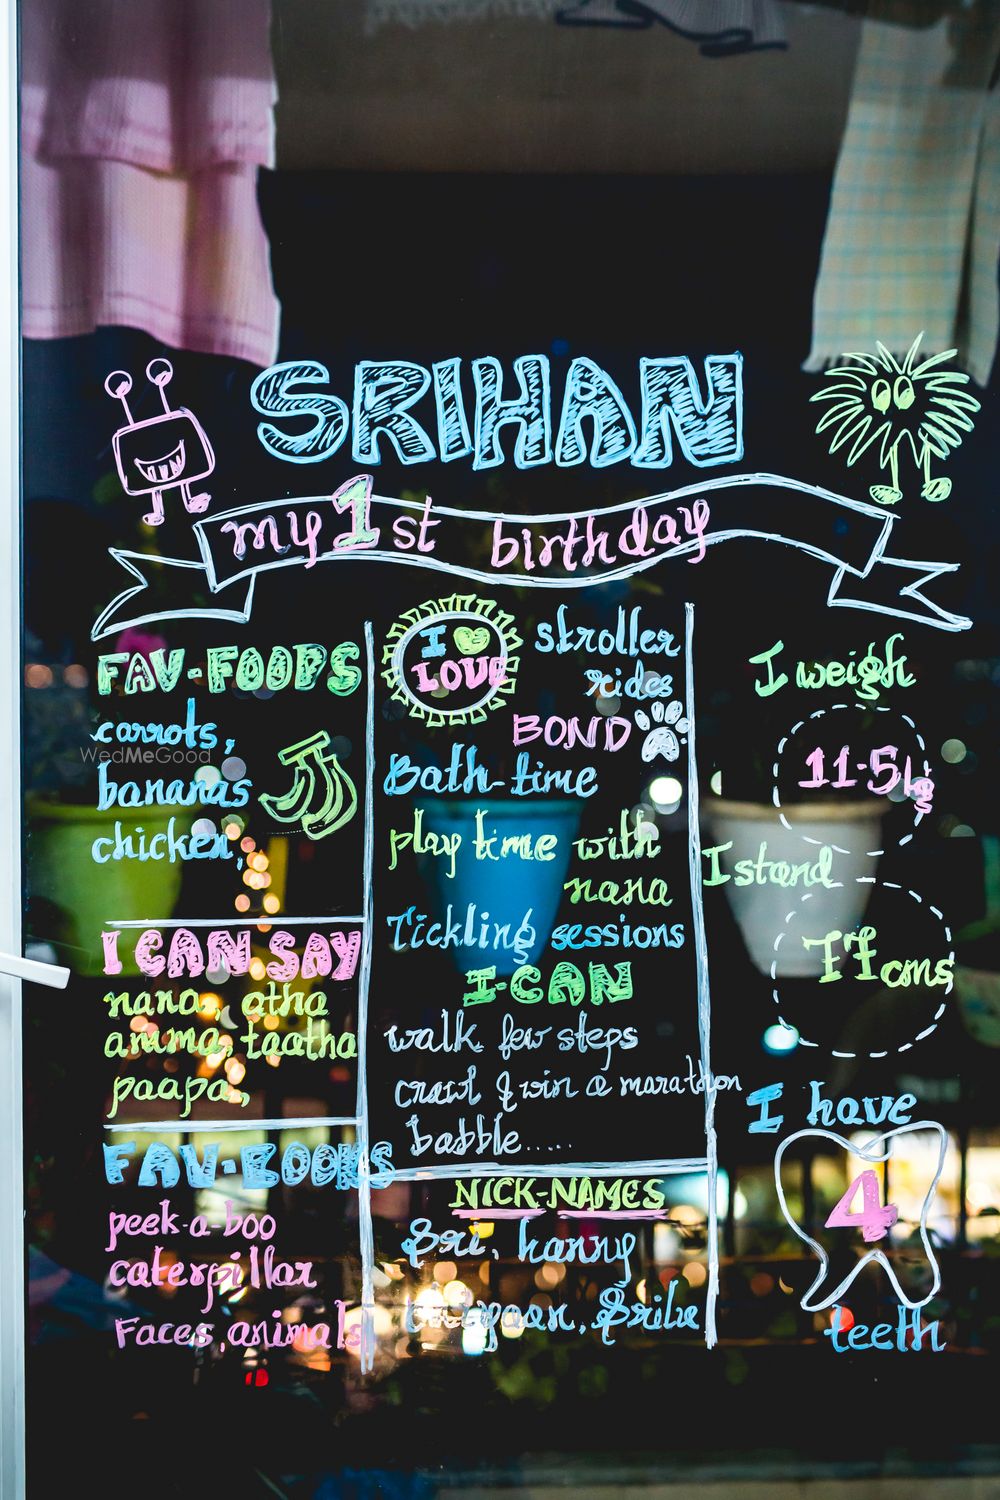 SRIHAN
my 1st birthday
FAV-FOODS
carrots,
bananas
chicken,
WedMeGood
I CAN SAY
nana, atha
amma, taatha
paapa,
FAV-BOOKS
peek-a-boo
caterpillar
Faces, animals
I
LOVE
stroller
rides
BOND
Bath-time
play time with
nana
Tickling sessions
I-CAN
walk few steps
crawl & win a marathon
babble.....
NICK-NAMES
Sri, hanny
I weigh
11.5kg
I stand
77cms
I have
4
teeth